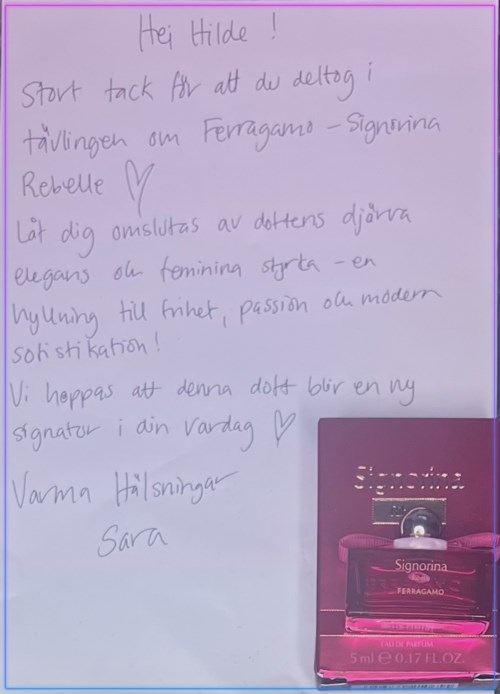 Hej Hilde !
Stort tack för att du deltog i
tävlingen om Ferragamo - Signorina
Rebelle ♡
Låt dig omslutas av doftens djärva
elegans och feminina styrka - en
hyllning till frihet, passion och modern
sofistikation!
Vi hoppas att denna doft blir en ny
signatur i din vardag ♡
Varma Hälsningar
Sara
Signorina
Signorina
FERRAGAMO
EAU DE PARFUM
5 ml ℮ 0.17 FL.OZ.